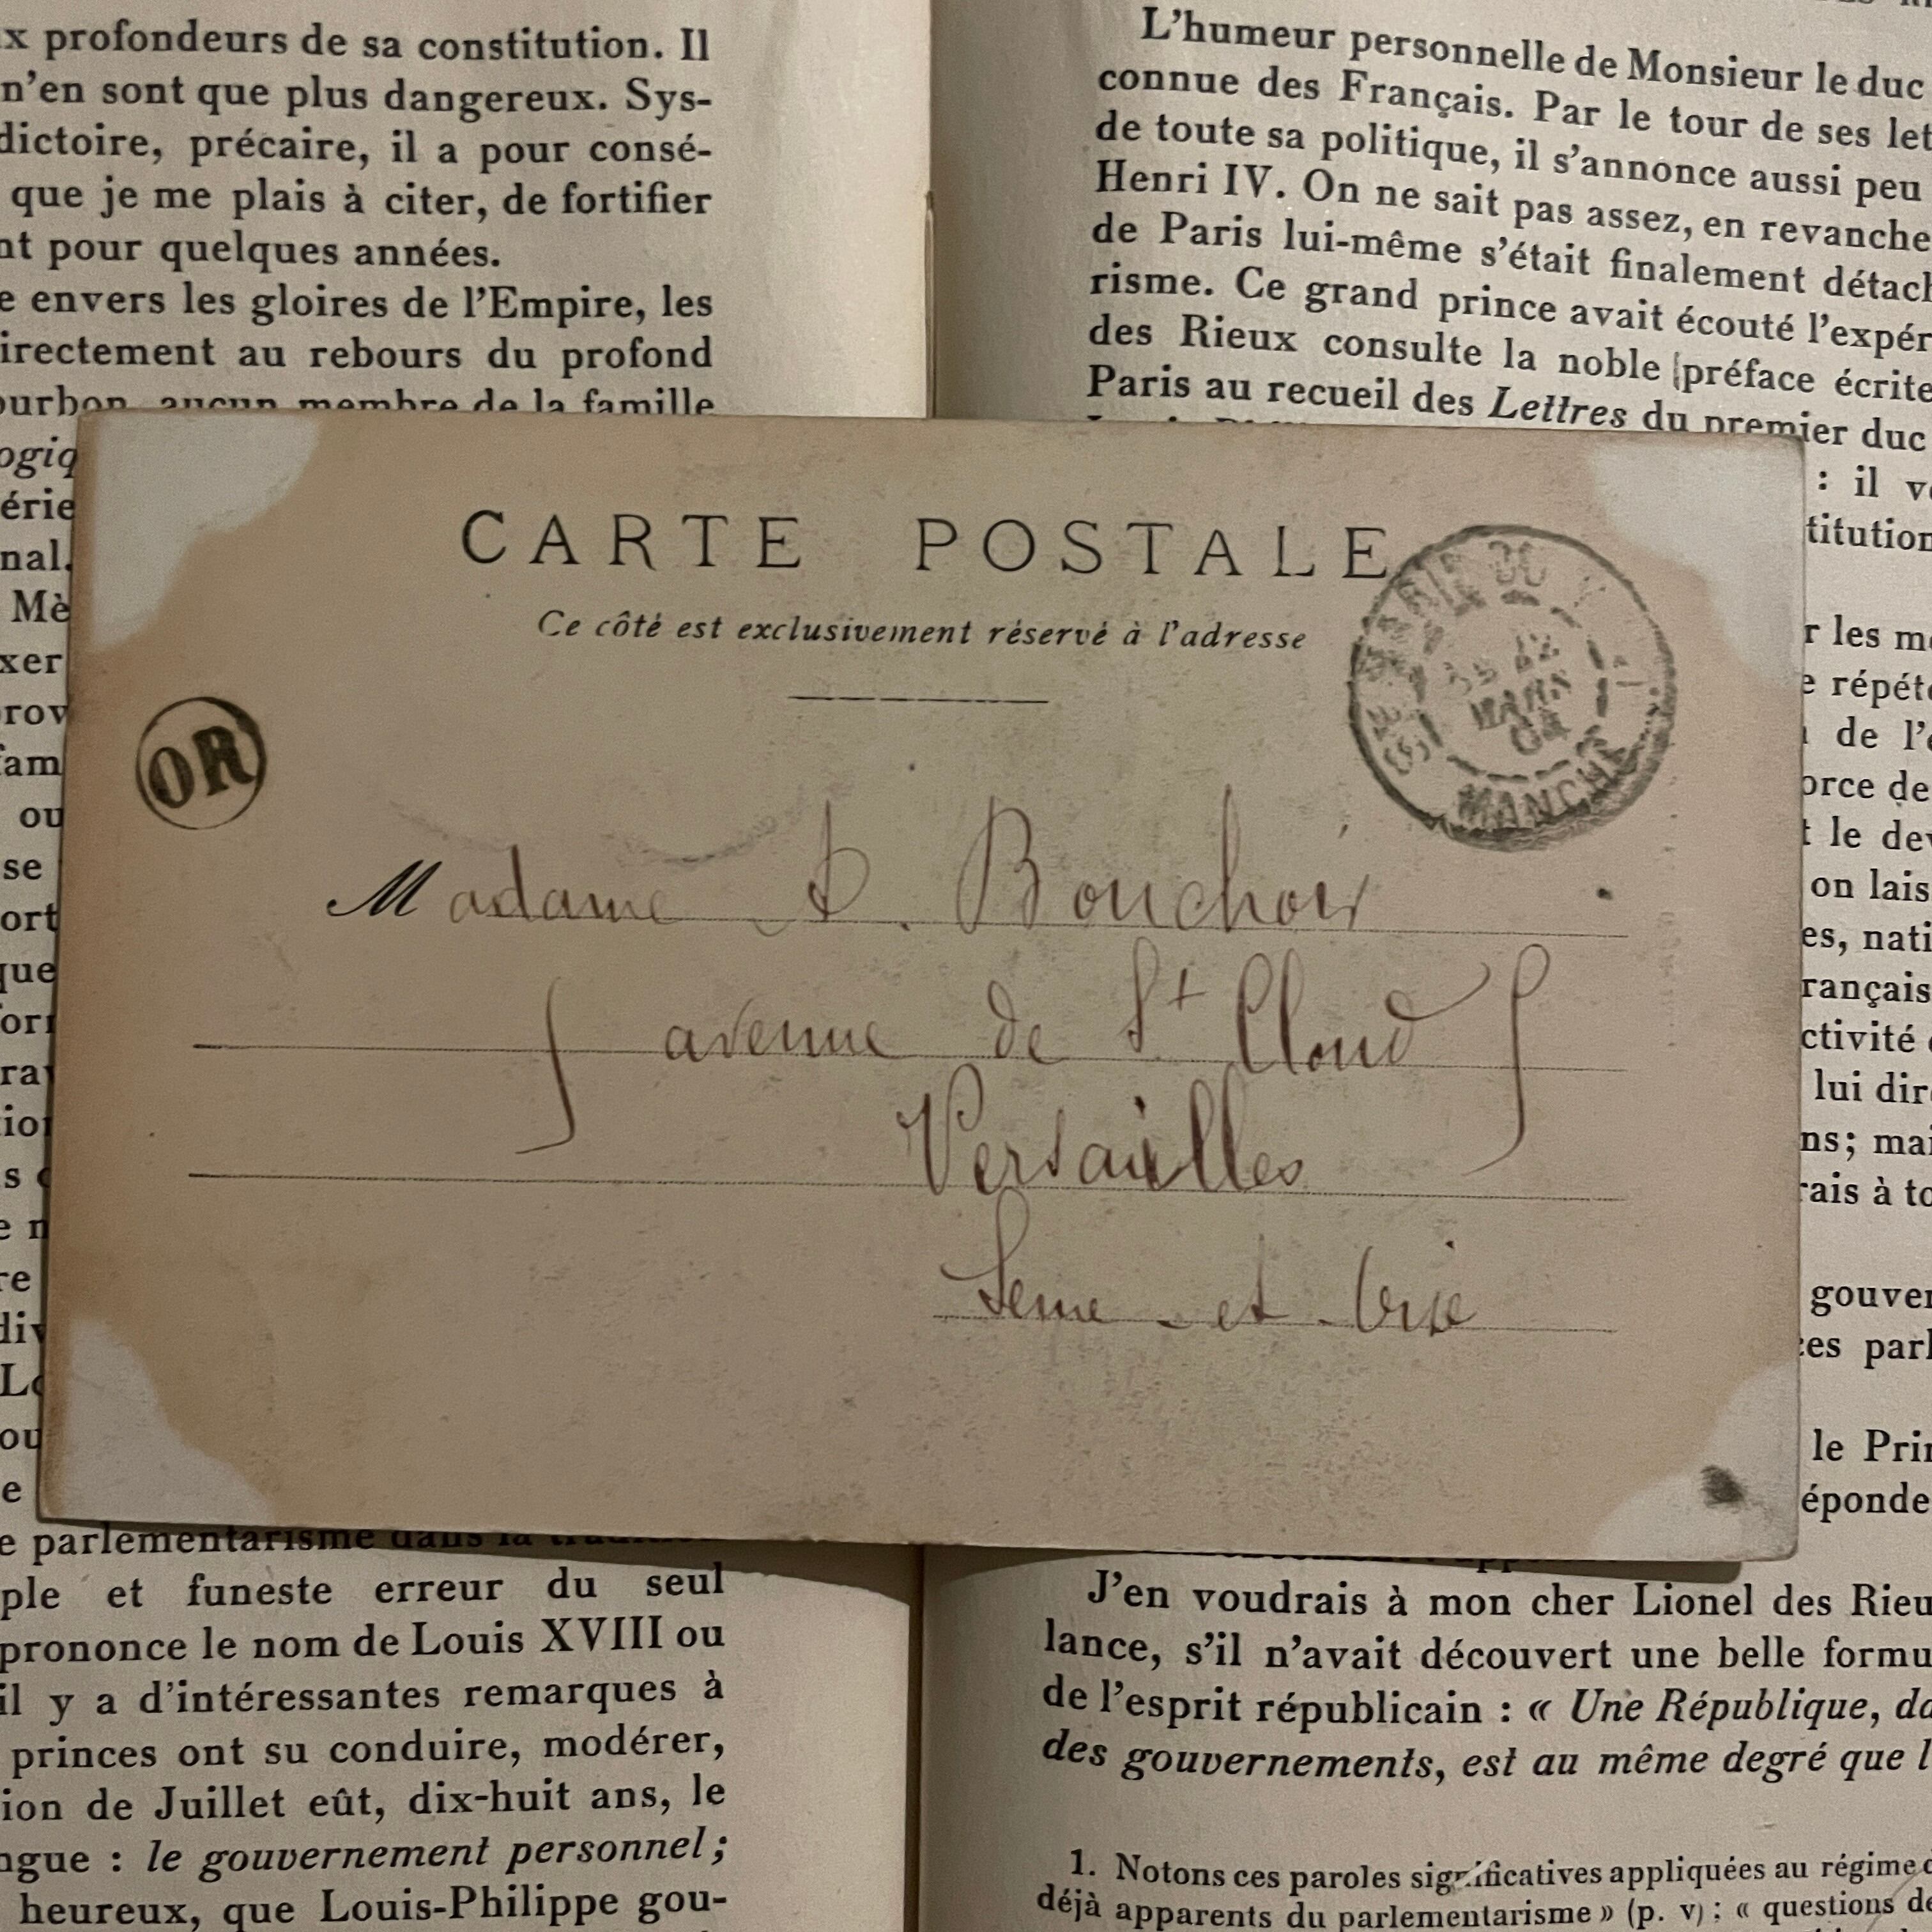 x profondeurs de sa constitution. Il
n'en sont que plus dangereux. Sys-
dictoire, précaire, il a pour consé-
que je me plais à citer, de fortifier
nt pour quelques années.
e envers les gloires de l'Empire, les
irectement au rebours du profond
ourbon, aucun membre de la famille
ogiq
érie
nal.
Mè
xer
prov
fam
ou
se
ort
que
orr
rav
tion
s
e n
re
div
Lo
ou
e
e parlementarisme dans la
ple et funeste erreur du seul
prononce le nom de Louis XVIII ou
il y a d'intéressantes remarques à
princes ont su conduire, modérer,
ion de Juillet eût, dix-huit ans, le
ngue : le gouvernement personnel ;
heureux, que Louis-Philippe gou-
CARTE POSTALE
Ce côté est exclusivement réservé à l'adresse
OR
12
MARS
04
MANCHE
Madame A. Bouchoir
5 avenue de St. Cloud 5
Versailles
Seine - et - Oise
L'humeur personnelle de Monsieur le duc
connue des Français. Par le tour de ses let
de toute sa politique, il s'annonce aussi peu
Henri IV. On ne sait pas assez, en revanche
de Paris lui-même s'était finalement détach
risme. Ce grand prince avait écouté l'expér
des Rieux consulte la noble préface écrite
Paris au recueil des Lettres du premier duc
: il v
titution
r les m
e répét
de l'
orce de
t le dev
on lais
es, nati
rançais
ctivité
lui dir
ns ; mai
rais à to
gouver
ces parl
le Prin
éponde
J'en voudrais à mon cher Lionel des Rieu
lance, s'il n'avait découvert une belle formu
de l'esprit républicain : « Une République, da
des gouvernements, est au même degré que l
1. Notons ces paroles significatives appliquées au régime
déjà apparents du parlementarisme » (p. v) : « questions de